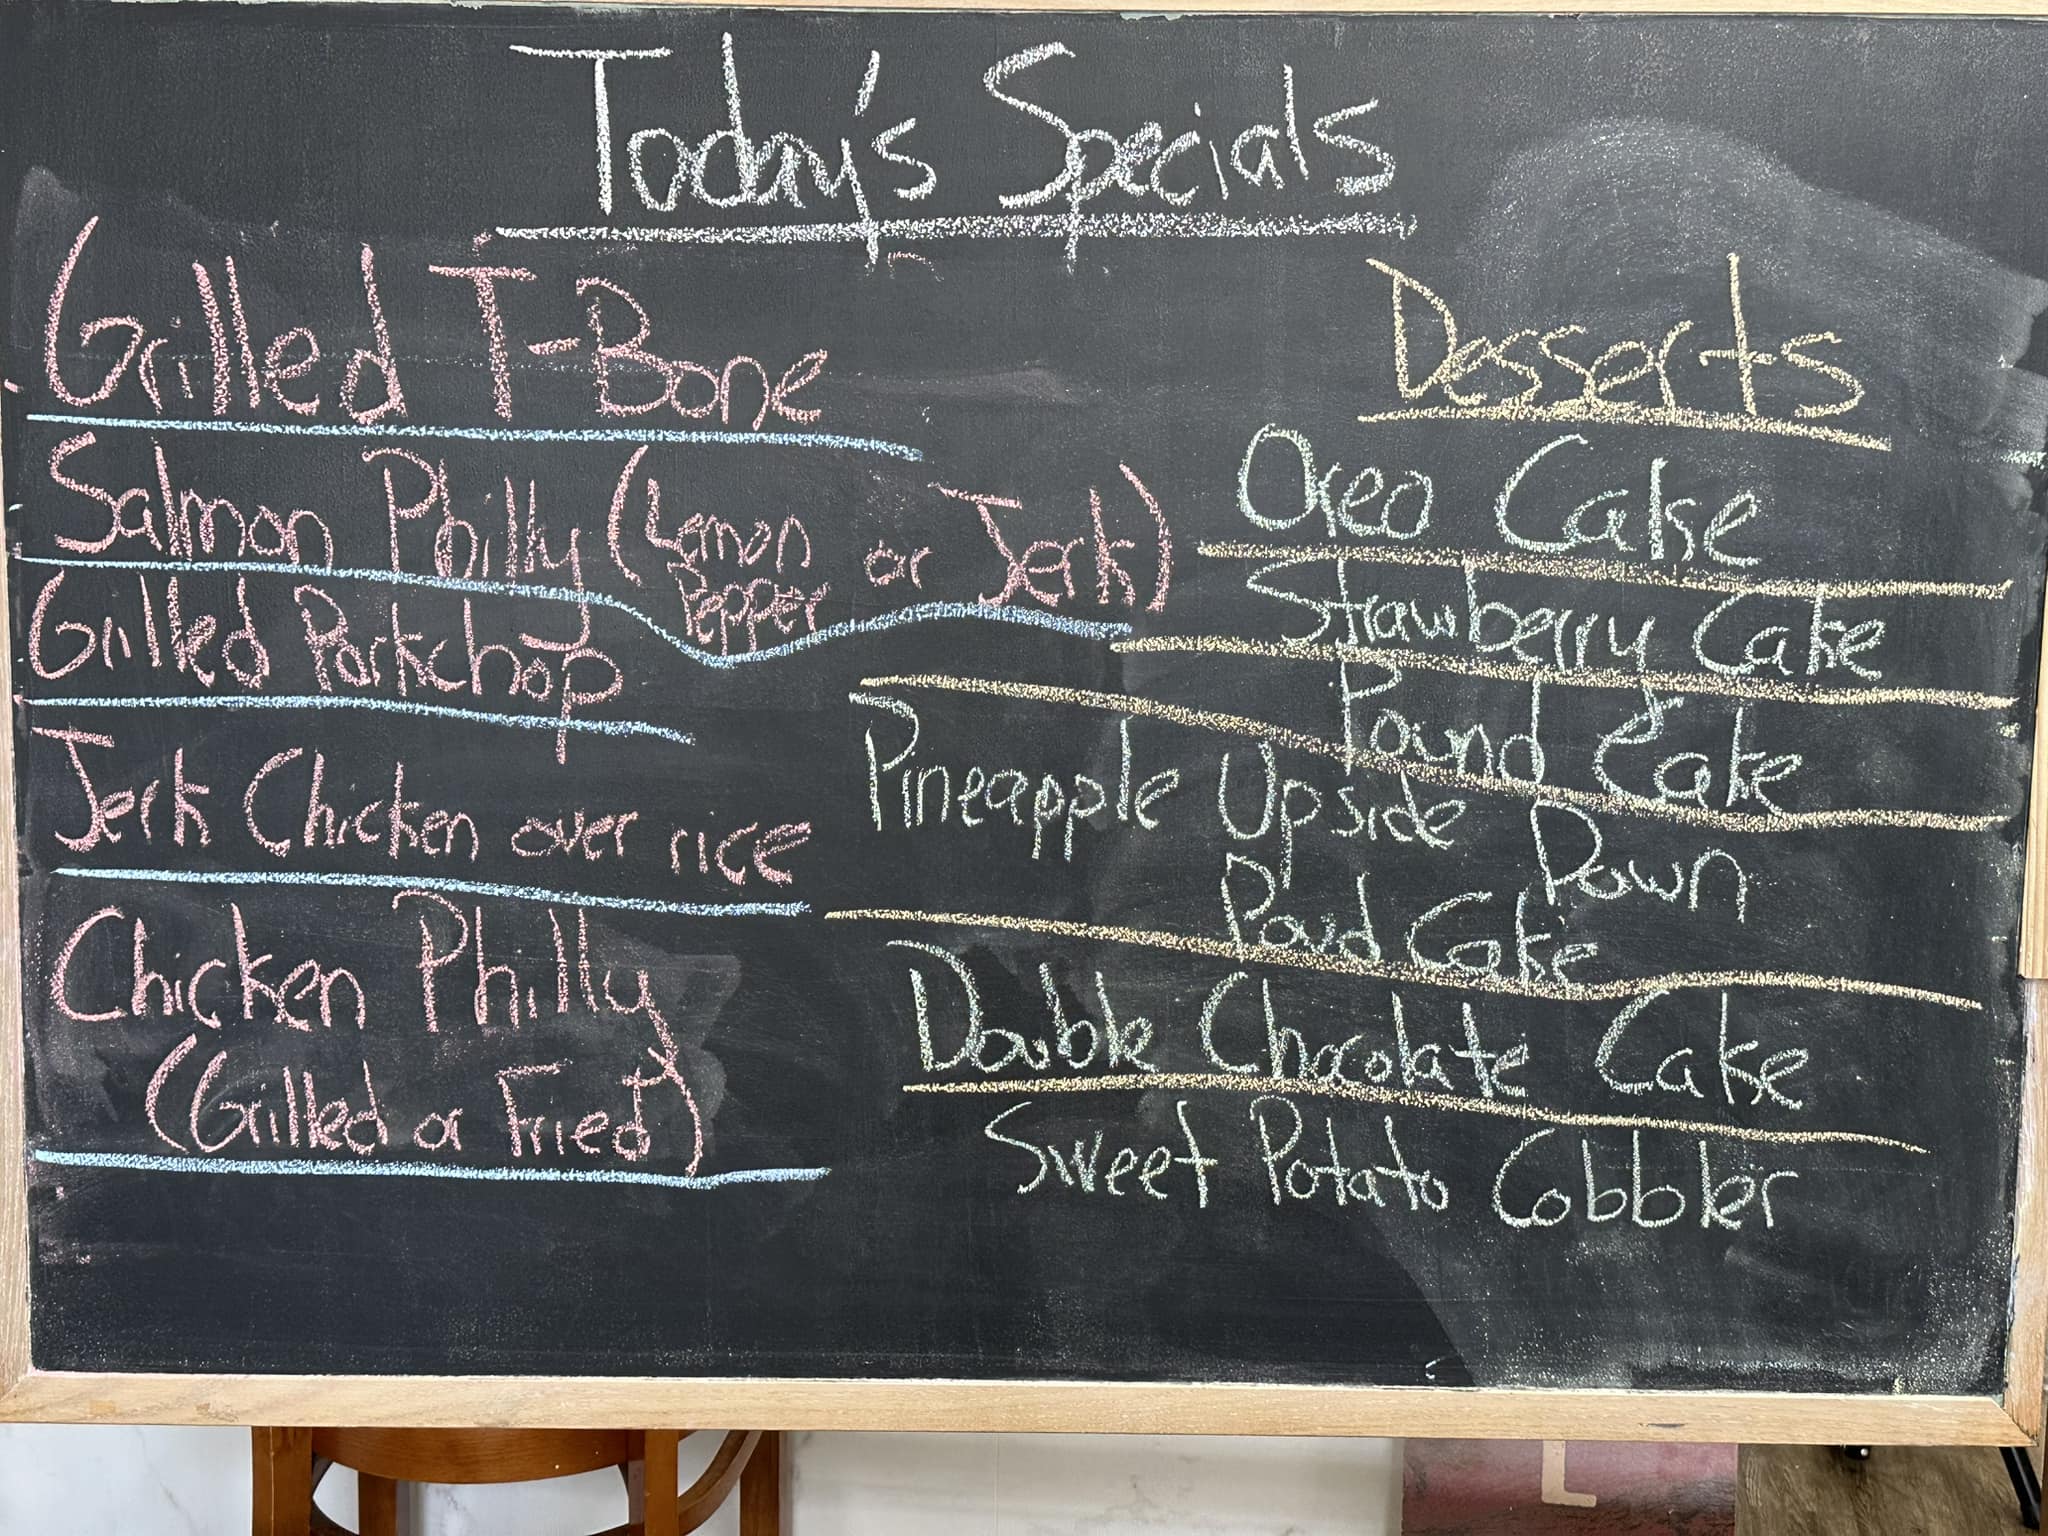 Today's Specials
Grilled T-Bone
Salmon Philly (Lemon Pepper or Jerk)
Grilled Porkchop
Jerk Chicken over rice
Chicken Philly
(Grilled or Fried)
Desserts
Oreo Cake
Strawberry Cake
Pound Cake
Pineapple Upside Down
Pound Cake
Double Chocolate Cake
Sweet Potato Cobbler
L